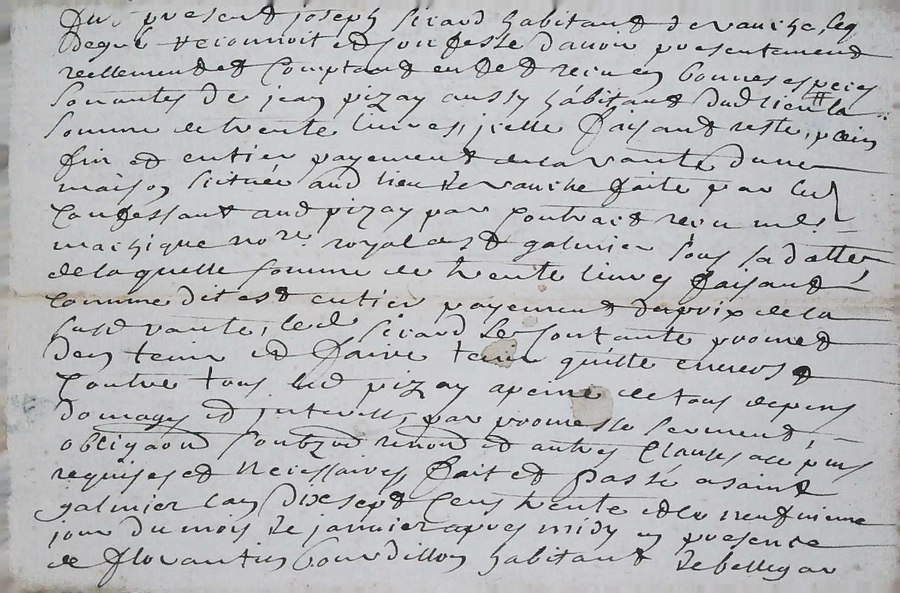 fut present joseph sicard habitant de vauche, leq
degré reconnoit et confesse d'avoir presentement
reellement et comptant eu et receu en bonnes especes
sonantes de jean pizay aussy habitant dud lieu la
somme de trente livres, icelle faisant reste, plein
fin et entier payement de la vante dune
maison scituée aud lieu de vauche faite par led
confessant aud pizay par contract receu me
machique nore royal de st galmier sous sa datte
de laquelle somme de trente livres faisant
comme dit est entier payement du prix de la
susd vante, led sicard se contante promet
den tenir et faire tenir quitte envers et
contre tous led pizay a peine de tous depens
domages et interests, par promesse serment
obligaon soubz renon et autres clauses
requises et necessaires, fait et passé a saint
galmier lan dix sept cens trente et le neufvieme
jour du mois de janvier apres midy en presence
de florantin bourdillon habitant de bellegar